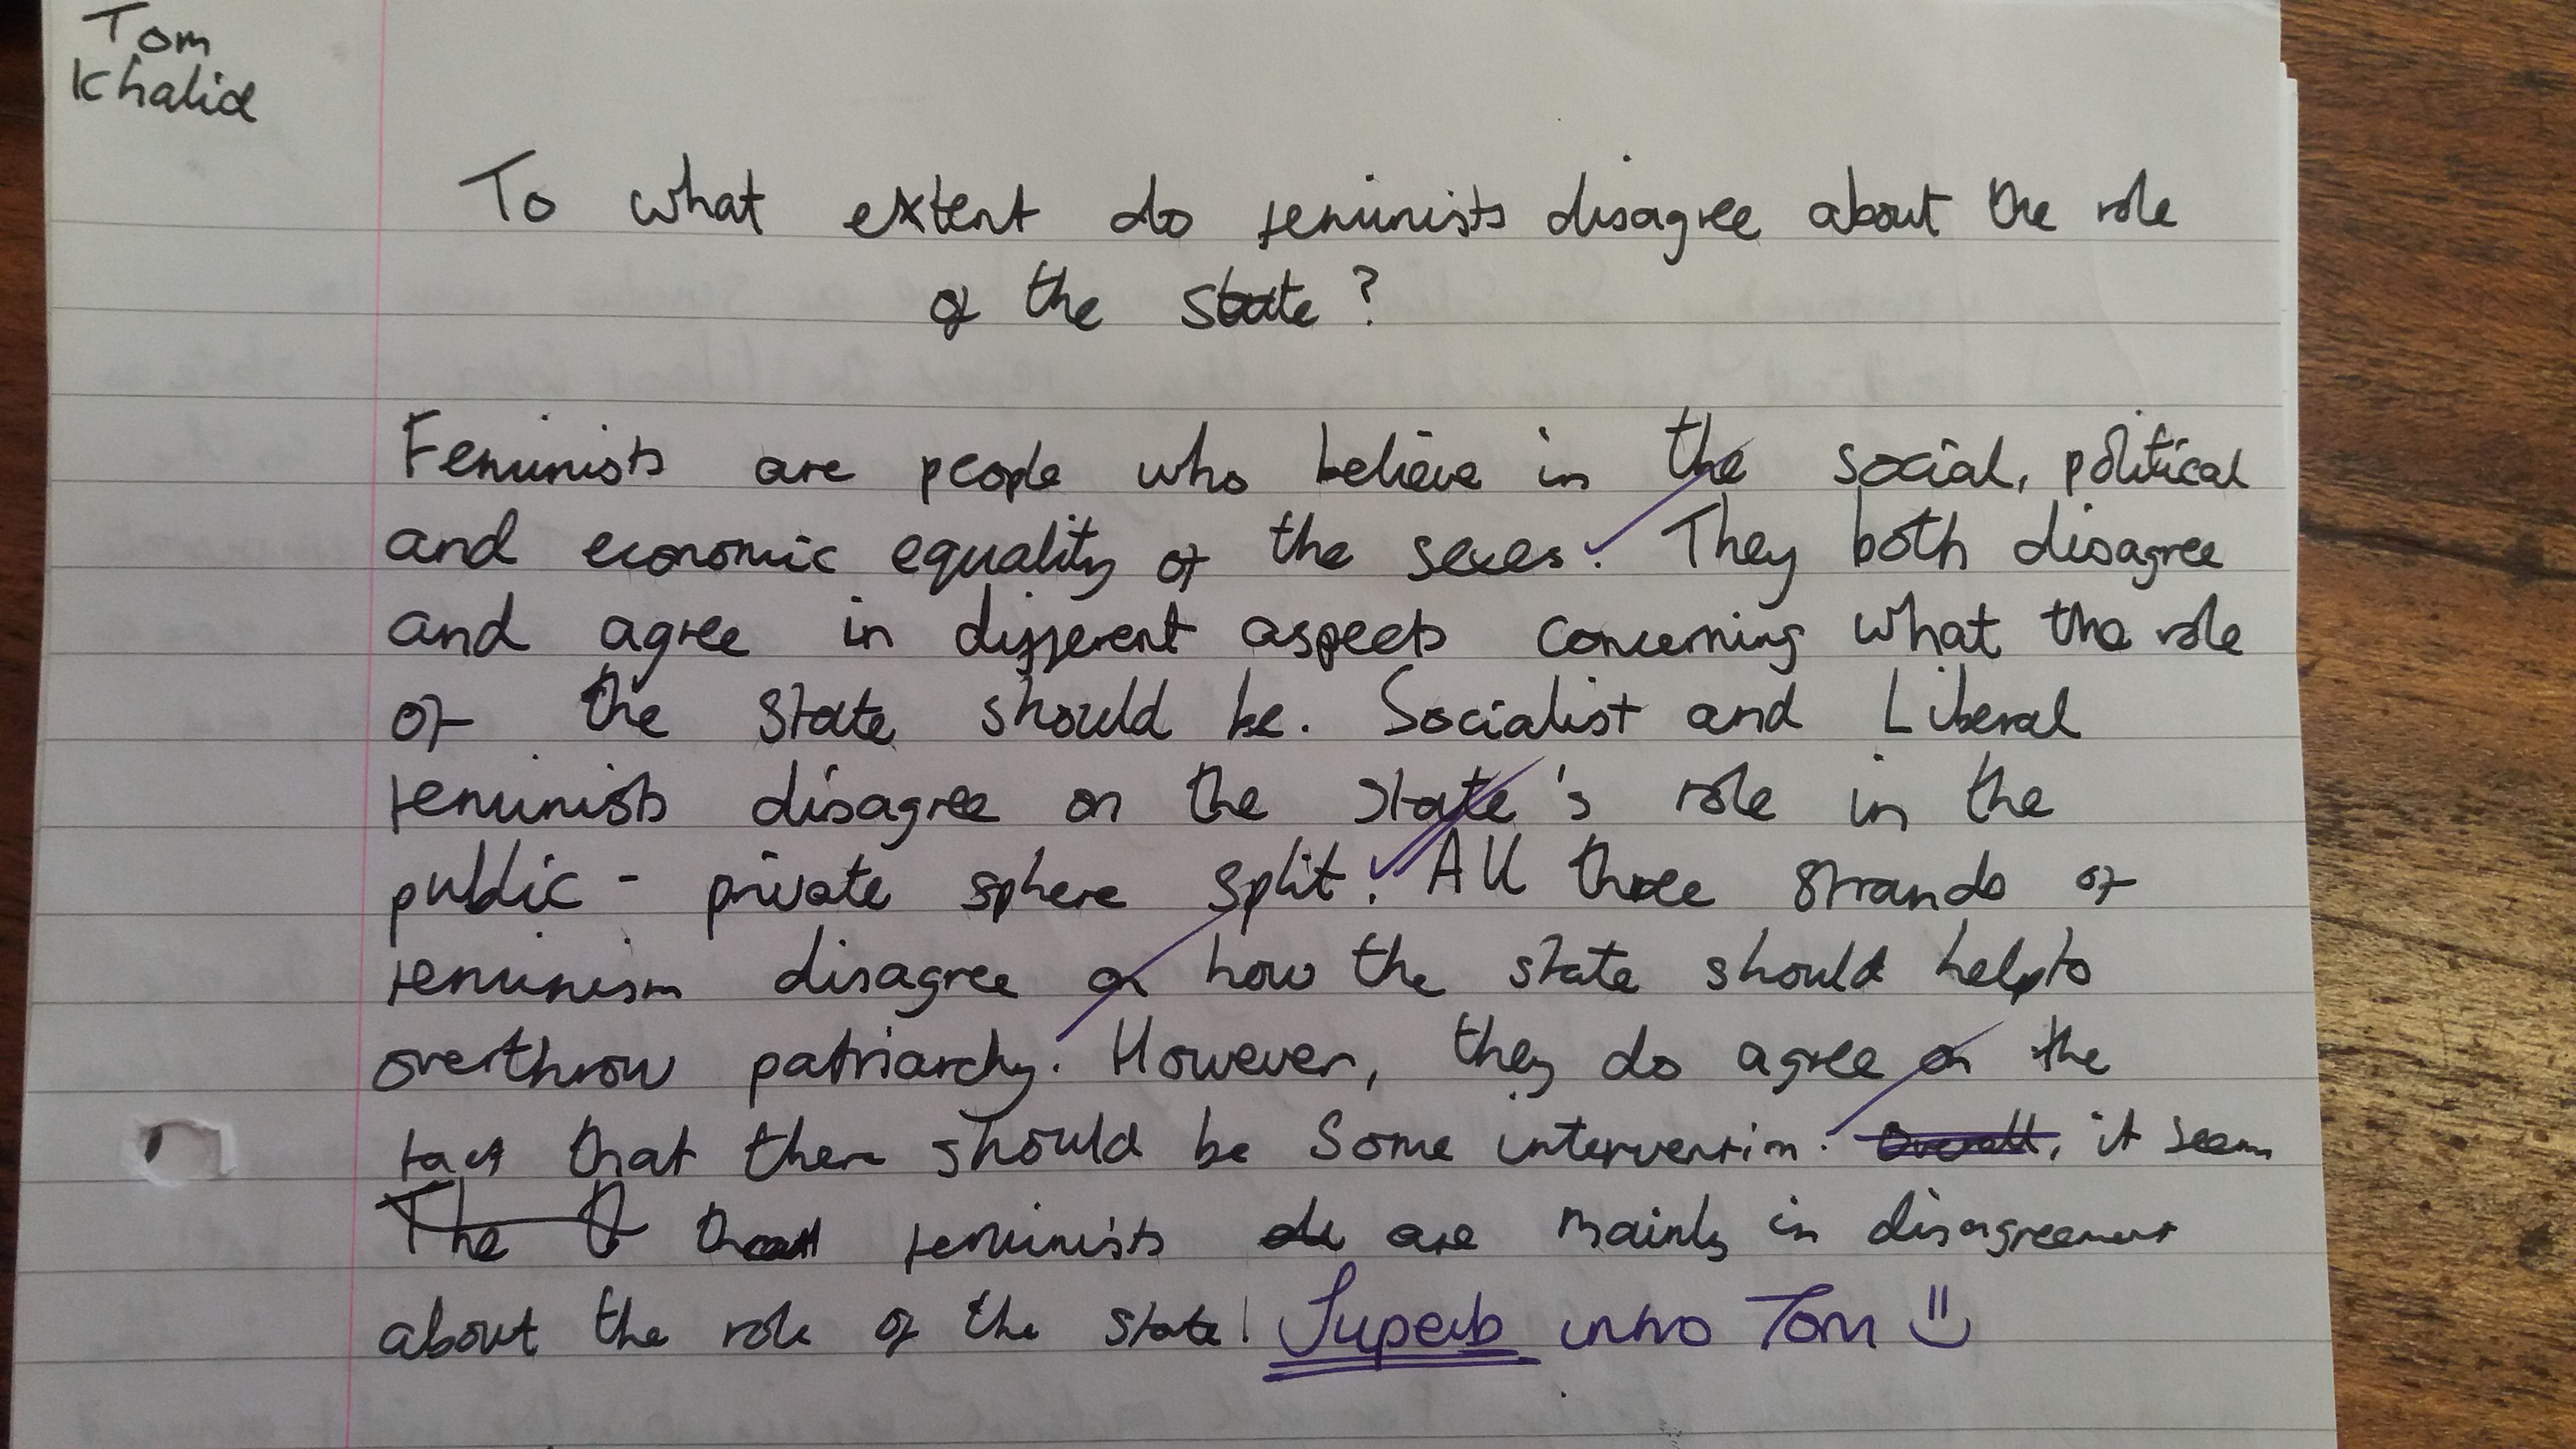 Tom
Khalid
To what extent do feminists disagree about the role
of the state?
Feminists are people who believe in the social, political
and economic equality of the sexes. They both disagree
and agree in different aspects concerning what the role
of the state should be. Socialist and Liberal
feminists disagree on the state's role in the
public - private sphere split. All three strands of
feminism disagree on how the state should help to
overthrow patriarchy. However, they do agree on the
fact that there should be some intervention. Overall, it seems
The feminists are mainly in disagreement
about the role of the state! Superb intro Tom